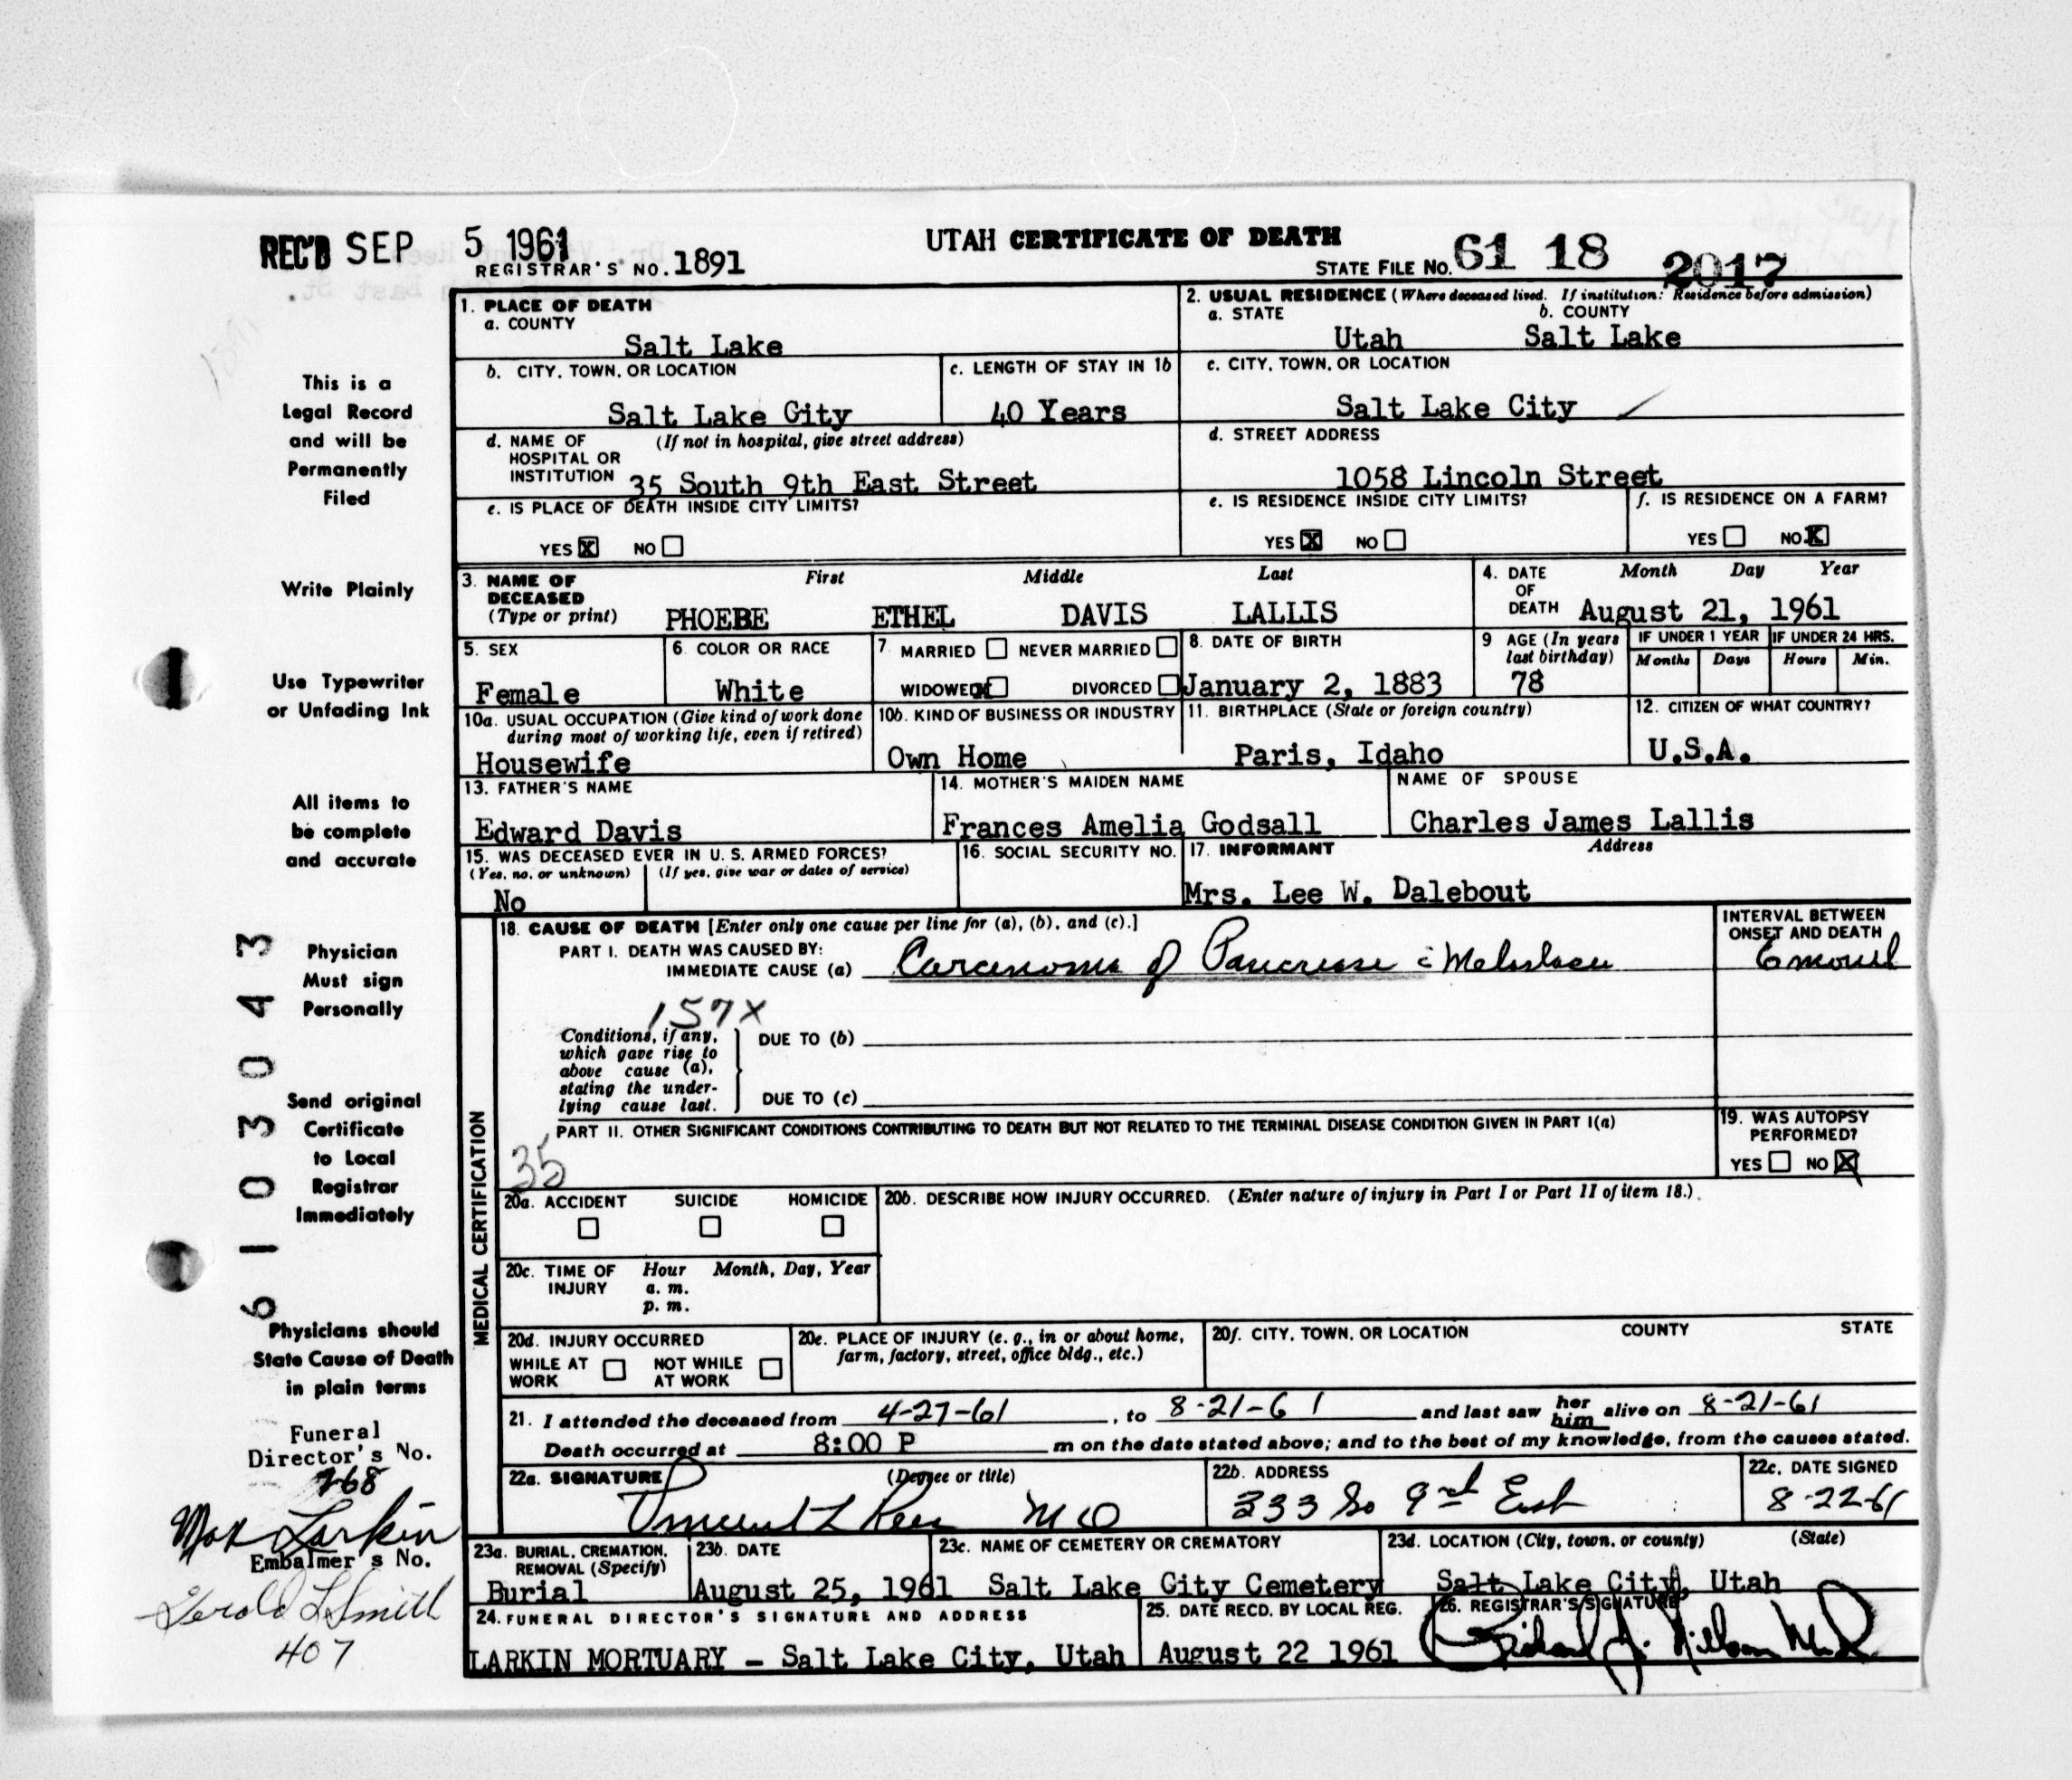 REC'D SEP 5 1961
REGISTRAR'S NO. 1891
UTAH CERTIFICATE OF DEATH
STATE FILE NO. 61 18 2017
1. PLACE OF DEATH
a. COUNTY
Salt Lake
2. USUAL RESIDENCE (Where deceased lived. If institution: Residence before admission)
a. STATE b. COUNTY
Utah Salt Lake
b. CITY, TOWN, OR LOCATION
Salt Lake City
c. LENGTH OF STAY IN 1b
40 Years
c. CITY, TOWN, OR LOCATION
Salt Lake City
d. NAME OF (If not in hospital, give street address)
HOSPITAL OR
INSTITUTION 35 South 9th East Street
d. STREET ADDRESS
1058 Lincoln Street
e. IS PLACE OF DEATH INSIDE CITY LIMITS?
YES X NO
e. IS RESIDENCE INSIDE CITY LIMITS?
YES X NO
f. IS RESIDENCE ON A FARM?
YES NO X
3. NAME OF DECEASED First Middle Last
(Type or print) PHOEBE ETHEL DAVIS LALLIS
4. DATE OF DEATH Month Day Year
August 21, 1961
5. SEX
Female
6. COLOR OR RACE
White
7. MARRIED NEVER MARRIED
WIDOWED X DIVORCED
8. DATE OF BIRTH
January 2, 1883
9 AGE (In years last birthday)
78
IF UNDER 1 YEAR IF UNDER 24 HRS.
Months Days Hours Min.
10a. USUAL OCCUPATION (Give kind of work done
during most of working life, even if retired)
Housewife
10b. KIND OF BUSINESS OR INDUSTRY
Own Home
11. BIRTHPLACE (State or foreign country)
Paris, Idaho
12. CITIZEN OF WHAT COUNTRY?
U.S.A.
13. FATHER'S NAME
Edward Davis
14. MOTHER'S MAIDEN NAME
Frances Amelia Godsall
NAME OF SPOUSE
Charles James Lallis
15. WAS DECEASED EVER IN U. S. ARMED FORCES?
(Yes, no, or unknown) (If yes, give war or dates of service)
No
16. SOCIAL SECURITY NO.
17. INFORMANT Address
Mrs. Lee W. Dalebout
MEDICAL CERTIFICATION
18. CAUSE OF DEATH [Enter only one cause per line for (a), (b), and (c).]
PART I. DEATH WAS CAUSED BY:
IMMEDIATE CAUSE (a) Carcinoma of Pancreas
INTERVAL BETWEEN
ONSET AND DEATH
157X
Conditions, if any,
which gave rise to
above cause (a),
stating the under-
lying cause last.
DUE TO (b)
DUE TO (c)
PART II. OTHER SIGNIFICANT CONDITIONS CONTRIBUTING TO DEATH BUT NOT RELATED TO THE TERMINAL DISEASE CONDITION GIVEN IN PART I(a)
35
19. WAS AUTOPSY
PERFORMED?
YES NO X
20a. ACCIDENT SUICIDE HOMICIDE
20b. DESCRIBE HOW INJURY OCCURRED. (Enter nature of injury in Part I or Part II of item 18.)
20c. TIME OF INJURY Hour Month, Day, Year
a. m.
p. m.
20d. INJURY OCCURRED
WHILE AT WORK NOT WHILE AT WORK
20e. PLACE OF INJURY (e. g., in or about home,
farm, factory, street, office bldg., etc.)
20f. CITY, TOWN, OR LOCATION COUNTY STATE
21. I attended the deceased from 4-27-61, to 8-21-61 and last saw her him alive on 8-21-61
Death occurred at 8:00 P m on the date stated above; and to the best of my knowledge, from the causes stated.
22a. SIGNATURE (Degree or title)
Vincent L Rees MD
22b. ADDRESS
333 So 9th East
22c. DATE SIGNED
8-22-61
23a. BURIAL, CREMATION,
REMOVAL (Specify)
Burial
23b. DATE
August 25, 1961
23c. NAME OF CEMETERY OR CREMATORY
Salt Lake City Cemetery
23d. LOCATION (City, town, or county) (State)
Salt Lake City, Utah
24. FUNERAL DIRECTOR'S SIGNATURE AND ADDRESS
LARKIN MORTUARY - Salt Lake City, Utah
25. DATE RECD. BY LOCAL REG.
August 22 1961
26. REGISTRAR'S SIGNATURE
This is a
Legal Record
and will be
Permanently
Filed
Write Plainly
Use Typewriter
or Unfading Ink
All items to
be complete
and accurate
Physician
Must sign
Personally
Send original
Certificate
to Local
Registrar
Immediately
Physicians should
State Cause of Death
in plain terms
6103043
Funeral
Director's No.
Max Larkin
Embalmer's No.
Gerald L Smith
407